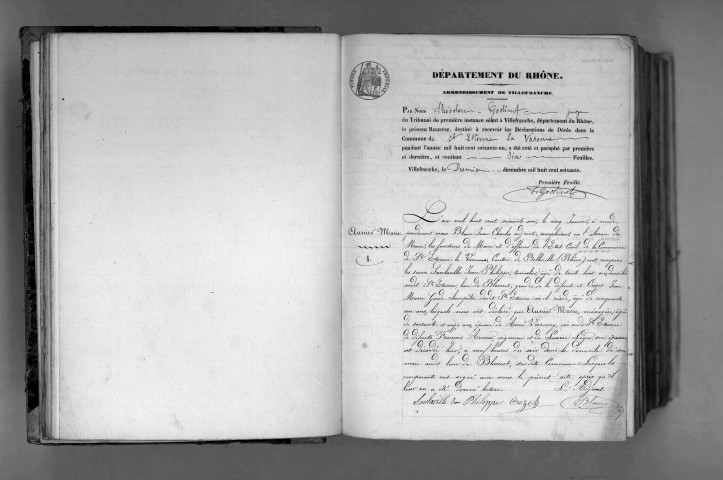 DÉPARTEMENT DU RHÔNE.
ARRONDISSEMENT DE VILLEFRANCHE.
PAR NOUS Théodore Godinot juge
du Tribunal de première instance séant à Villefranche, département du Rhône,
le présent REGISTRE, destiné à recevoir les Déclarations de Décès dans la
Commune de St Etienne la Varenne
pendant l'année mil huit cent soixante-un, a été coté et paraphé par première
et dernière, et contient dix Feuilles.
Villefranche, le Premier décembre mil huit cent soixante.
Première Feuille.
Aunier Marie
1.
L'an mil huit cent soixante un, le cinq Janvier, à midi,
pardevant nous Jean Charles adjoint, remplissant en l'absence du
Maire, les fonctions de Maire et d'officier de l'Etat Civil de la Commune
de St Etienne la Varenne, Canton de Belleville (Rhône) ont comparu
les sieurs Jean Philippe, âgé de trente huit ans, domicilié
audit St Etienne, lieu de Blauret, gendre de la défunte et Crozet Jean
Marie Garde champêtre dudit St Etienne où il réside, âgé de cinquante
un ans, lesquels nous ont déclaré que Aunier Marie, ménagère, âgée
de soixante et onze ans, épouse de née audit St Etienne
de défunts François Aunier, vigneron et de Louise
est décédée hier, à neuf heures du soir dans le domicile de son
mari audit lieu de Blauret, susdite Commune. Lesquels
comparants ont signé avec nous le présent acte après qu'il
leur en a été donné lecture. L'Adjoint
Philippe Crozet